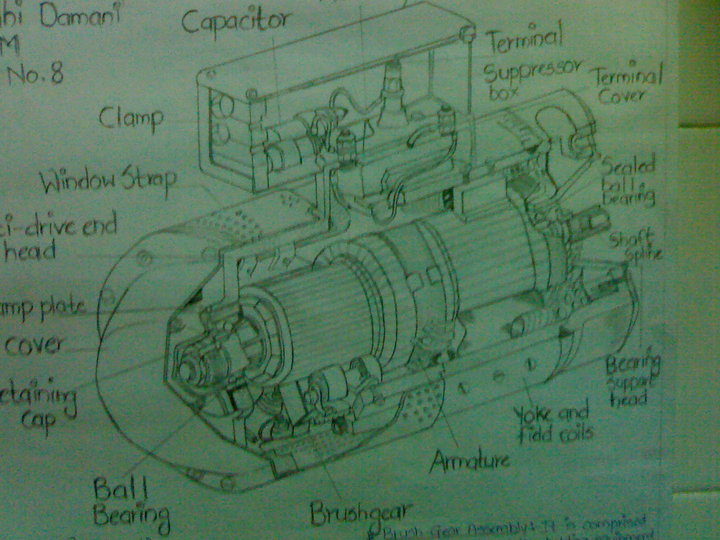 hi Damani
M
No. 8
Capacitor
Terminal
Suppressor
box
Terminal
Cover
Clamp
Window Strap
Sealed
ball
bearing
i-drive end
head
Shaft
Spline
amp plate
cover
etaining
cap
Bearing
Support
head
Yoke and
field coils
Armature
Ball
Bearing
Brushgear
Brush Gear Assembly:- It is comprised